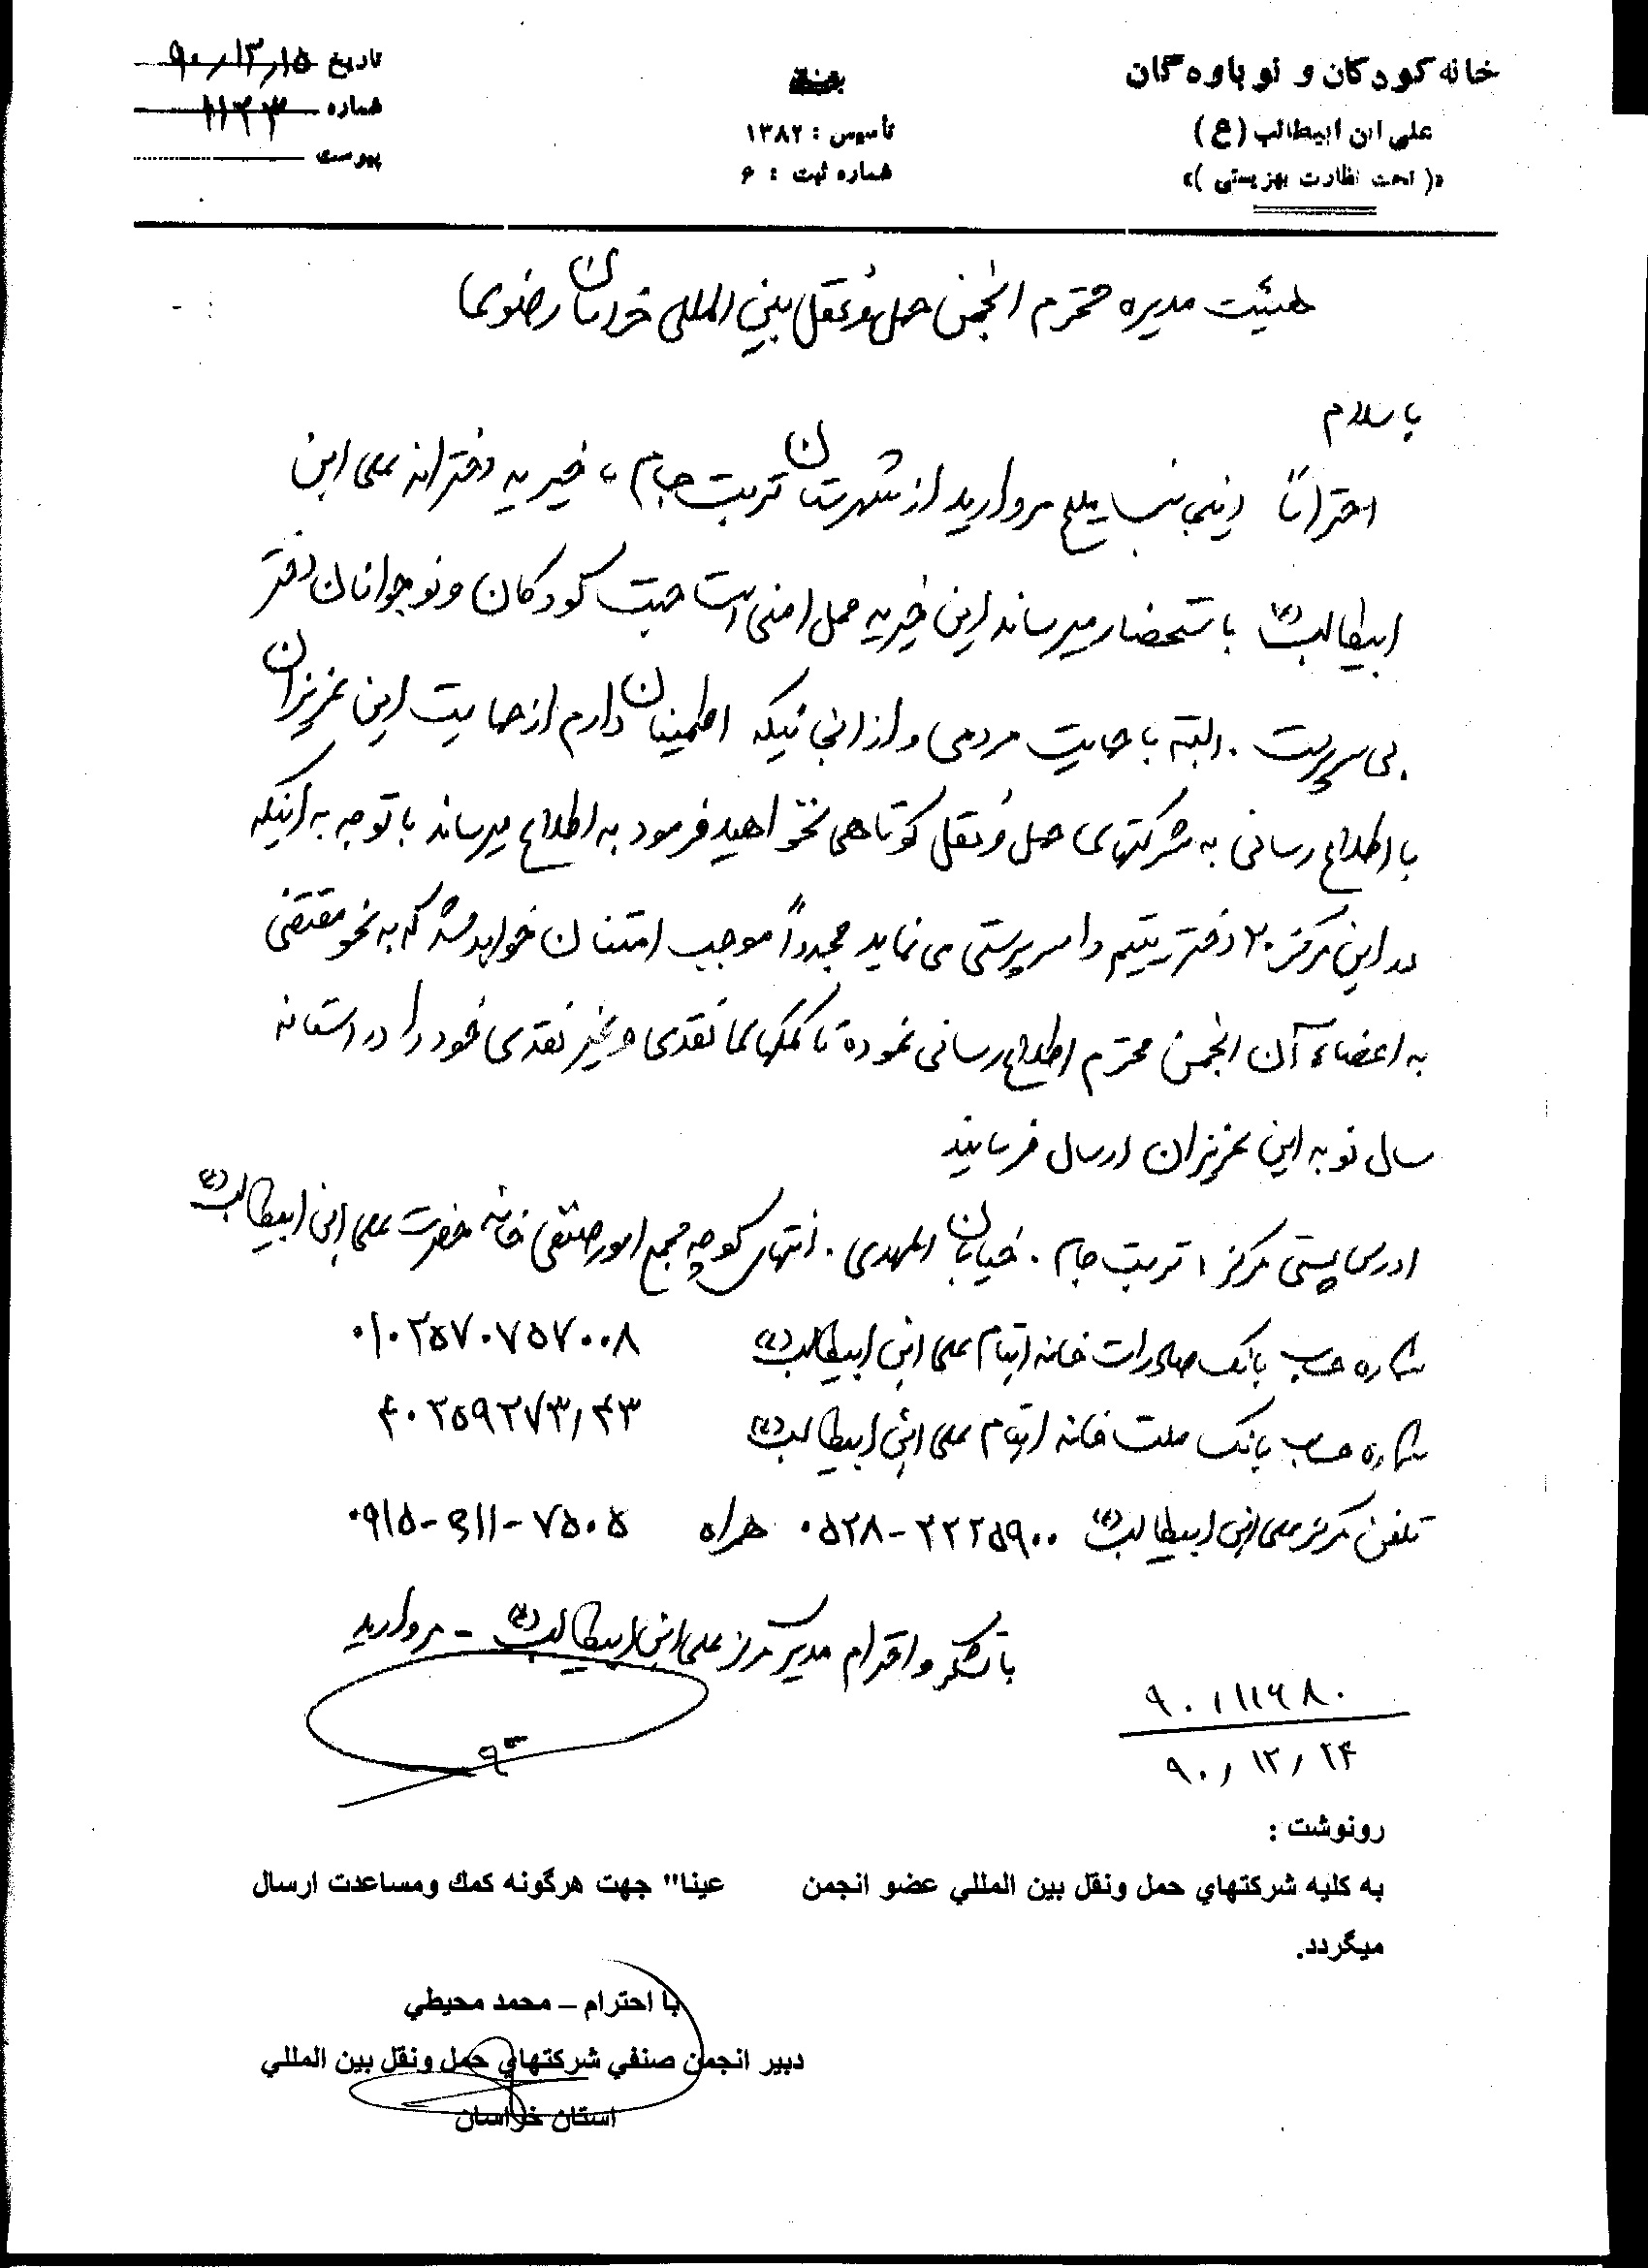 خانه کودکان و نو باوه گان
علی ابن ابیطالب (ع)
«( تحت نظارت بهزیستی )»
تأسیس : ۱۳۸۲
شماره ثبت : ۶
تاریخ ۹۰/۱۲/۱۵
شماره ۱۱۲۳
پیوست
هیئت مدیره محترم انجمن حمل و نقل بین المللی خراسان رضوی
با سلام
احتراماً اینجانب مروارید از شهرستان تربت جام ، خیریه دخترانه علی ابن
ابیطالب (ع) باستحضار میرساند این خیریه محل امنی است جهت کودکان و نوجوانان دختر
بی سرپرست . البته با حمایت مردمی و از آنجائیکه اطمینان دارم از حمایت این عزیزان
با اطلاع رسانی به شرکتهای حمل و نقل کوتاهی نخواهید فرمود به اطلاع میرساند با توجه به اینکه
در این مرکز ۲۰ دختر یتیم را سرپرستی می نماید مجدداً موجب امتنان خواهد شد که به نحو مقتضی
به اعضاء آن انجمن محترم اطلاع رسانی نموده تا کمکهای نقدی و غیر نقدی خود را در آستانه
سال نو به این عزیزان ارسال فرمایند
ادرس پستی مرکز : تربت جام . خیابان المهدی . انتهای کوچه مجمع امور صنفی خانه حضرت علی ابن ابیطالب (ع)
شماره حساب بانک صادرات خانه ایتام علی ابن ابیطالب (ع) ۰۱۰۲۵۷۰۷۵۷۰۰۸
شماره حساب بانک ملت خانه ایتام علی ابن ابیطالب (ع) ۴۰۲۵۹۲۷۳/۴۳
تلفن مرکز علی ابن ابیطالب (ع) ۰۵۲۸-۲۲۲۵۹۰۰ همراه ۰۹۱۵-۵۱۱-۷۵۰۵
با تشکر و اقدام مدیر مرکز علی ابن ابیطالب (ع) - مروارید
۹۰/۱۱۶۸۰
۹۰/۱۲/۲۴
رونوشت :
به کلیه شرکتهاي حمل ونقل بین المللي عضو انجمن عینا" جهت هرگونه کمك ومساعدت ارسال
میگردد.
با احترام – محمد محیطي
دبیر انجمن صنفي شرکتهاي حمل ونقل بین المللي
استان خراسان